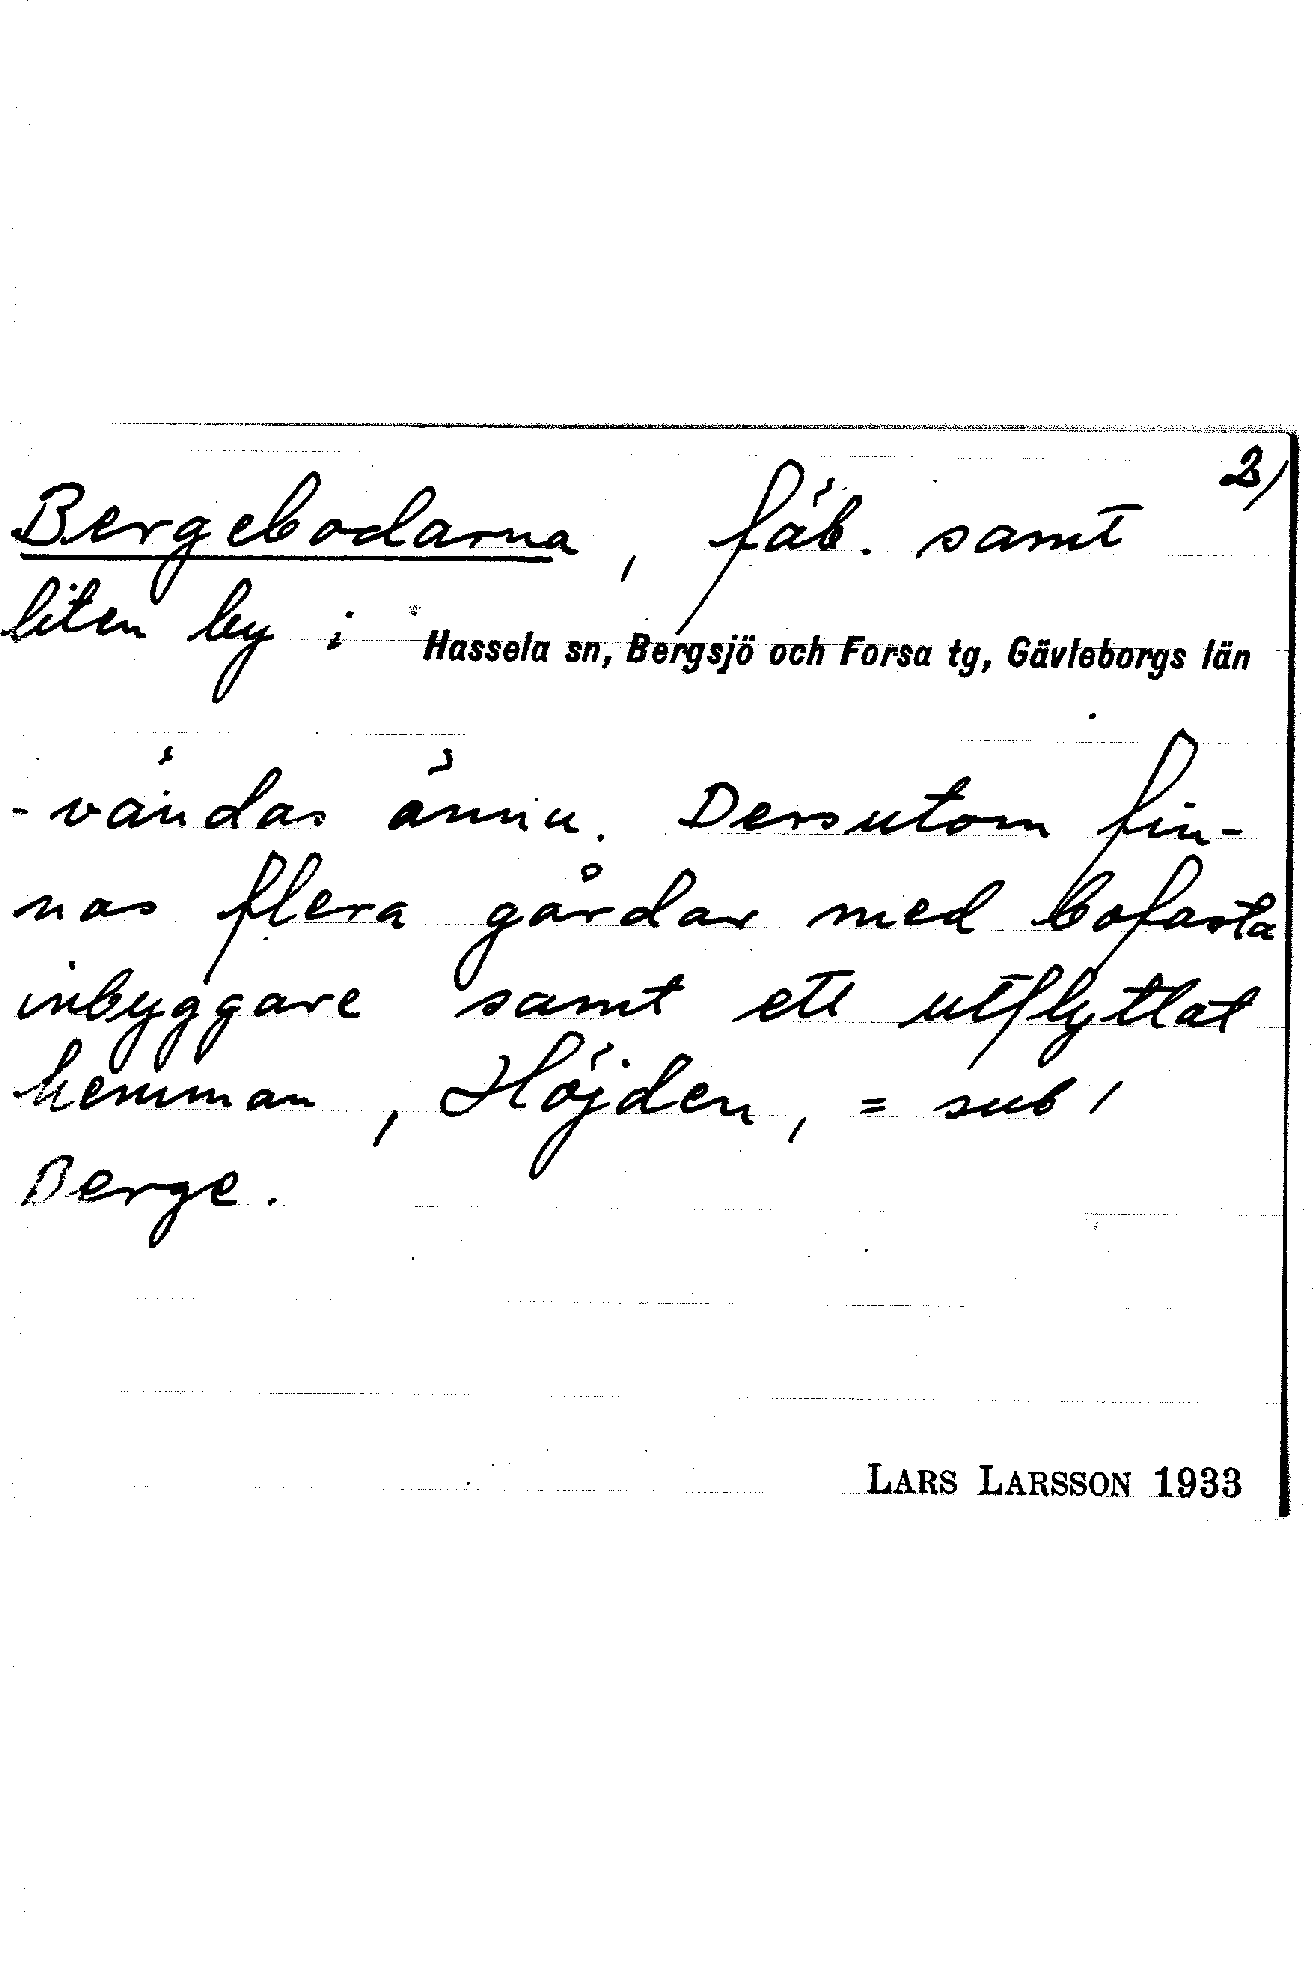 2)
Bergebodarna, fäb. samt
liten by i Hassela sn, Bergsjö och Forsa tg, Gävleborgs län
-vändas ännu. Dersutom fin-
nas flera gårdar med bofasta
inbyggare samt ett utflyttat
hemman, Höjden, = sub 1
Berge.
LARS LARSSON 1933